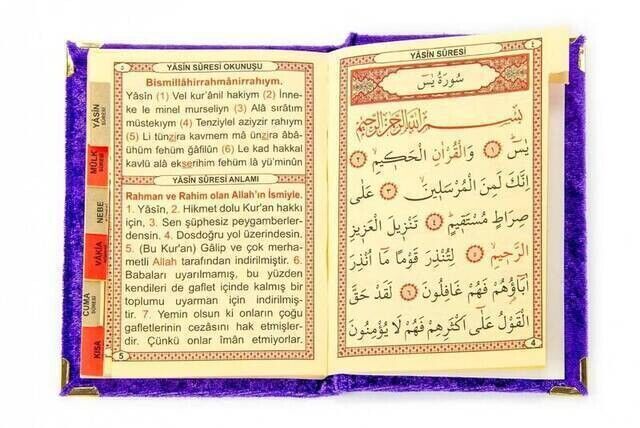 YÂSİN SÛRESİ OKUNUŞU
Bismillâhirrahmânirrahıym.
Yâsîn (1) Vel kur'ânil hakiym (2) İnne-
ke le minel murseliyn (3) Alâ sırâtım
müstekıym (4) Tenziylel aziyzir rahıym
(5) Li tünzira kavmem mâ ünzira âbâ-
ühüm fehüm ğâfilûn (6) Le kad hakkal
kavlü alâ ekserihim fehüm lâ yü'minûn
YÂSİN SÛRESİ ANLAMI
Rahman ve Rahim olan Allah'ın İsmiyle.
1. Yâsîn, 2. Hikmet dolu Kur'an hakkı
için, 3. Sen şüphesiz peygamberler-
densin. 4. Dosdoğru yol üzerindesin.
5. (Bu Kur'an) Gâlip ve çok merha-
metli Allah tarafından indirilmiştir. 6.
Babaları uyarılmamış, bu yüzden
kendileri de gaflet içinde kalmış bir
toplumu uyarman için indirilmiş-
tir. 7. Yemin olsun ki onların çoğu
gafletlerinin cezasını hak etmişler-
dir. Çünkü onlar îmân etmiyorlar.
5
YÂSİN SÛRESİ
MÜLK SÛRESİ
NEBE
VÂKIA
CUMA SÛRESİ
KISA
YÂSİN SÛRESİ
٤
سُورَةُ يٰسٓ
بِسْمِ اللّٰهِ الرَّحْمٰنِ الرَّحِيمِ
يٰسٓ ﴿١﴾ وَالْقُرْاٰنِ الْحَكٖيمِ ﴿٢﴾
اِنَّكَ لَمِنَ الْمُرْسَلٖينَ ﴿٣﴾ عَلٰى
صِرَاطٍ مُسْتَقٖيمٍ ﴿٤﴾ تَنْزٖيلَ الْعَزٖيزِ
الرَّحٖيمِ ﴿٥﴾ لِتُنْذِرَ قَوْمًا مَٓا اُنْذِرَ
اٰبَٓاؤُ۬هُمْ فَهُمْ غَافِلُونَ ﴿٦﴾ لَقَدْ حَقَّ
الْقَوْلُ عَلٰٓى اَكْثَرِهِمْ فَهُمْ لَا يُؤْمِنُونَ
4